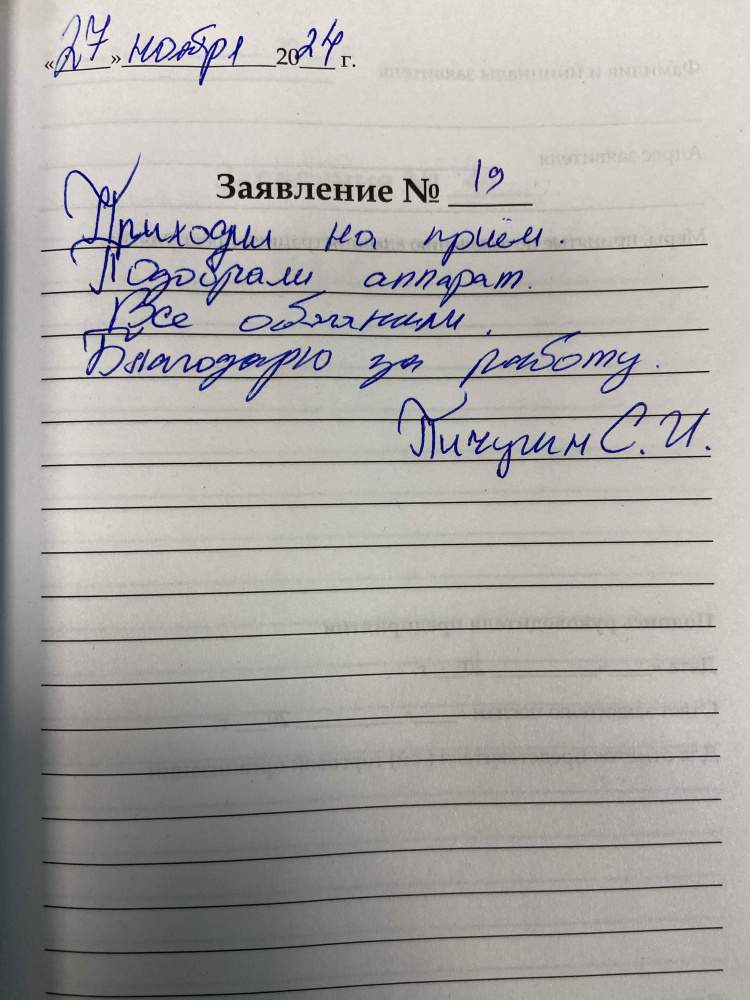 «27» ноября 2024 г.
Заявление № 19
Приходил на приём.
Подобрали аппарат.
Все объяснили.
Благодарю за работу.
Пичугин С. И.